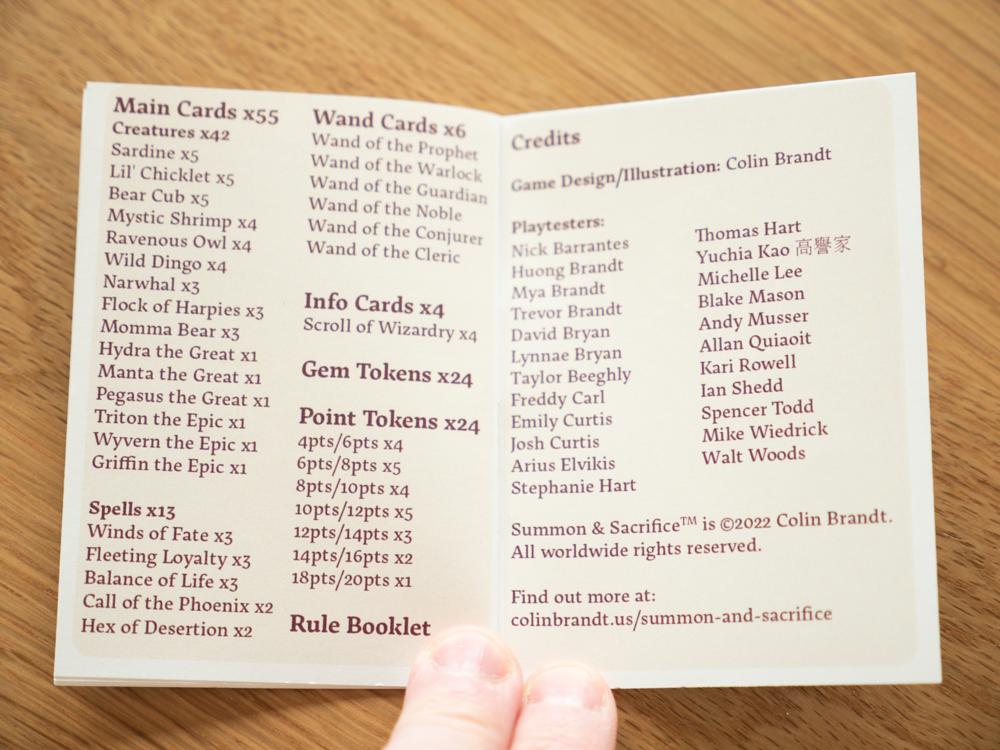 Main Cards x55
Creatures x42
Sardine x5
Lil' Chicklet x5
Bear Cub x5
Mystic Shrimp x4
Ravenous Owl x4
Wild Dingo x4
Narwhal x3
Flock of Harpies x3
Momma Bear x3
Hydra the Great x1
Manta the Great x1
Pegasus the Great x1
Triton the Epic x1
Wyvern the Epic x1
Griffin the Epic x1
Spells x13
Winds of Fate x3
Fleeting Loyalty x3
Balance of Life x3
Call of the Phoenix x2
Hex of Desertion x2
Wand Cards x6
Wand of the Prophet
Wand of the Warlock
Wand of the Guardian
Wand of the Noble
Wand of the Conjurer
Wand of the Cleric
Info Cards x4
Scroll of Wizardry x4
Gem Tokens x24
Point Tokens x24
4pts/6pts x4
6pts/8pts x5
8pts/10pts x4
10pts/12pts x5
12pts/14pts x3
14pts/16pts x2
18pts/20pts x1
Rule Booklet
Credits
Game Design/Illustration: Colin Brandt
Playtesters:
Nick Barrantes
Huong Brandt
Mya Brandt
Trevor Brandt
David Bryan
Lynnae Bryan
Taylor Beeghly
Freddy Carl
Emily Curtis
Josh Curtis
Arius Elvikis
Stephanie Hart
Thomas Hart
Yuchia Kao 高譽家
Michelle Lee
Blake Mason
Andy Musser
Allan Quiaoit
Kari Rowell
Ian Shedd
Spencer Todd
Mike Wiedrick
Walt Woods
Summon & Sacrifice™ is ©2022 Colin Brandt.
All worldwide rights reserved.
Find out more at:
colinbrandt.us/summon-and-sacrifice